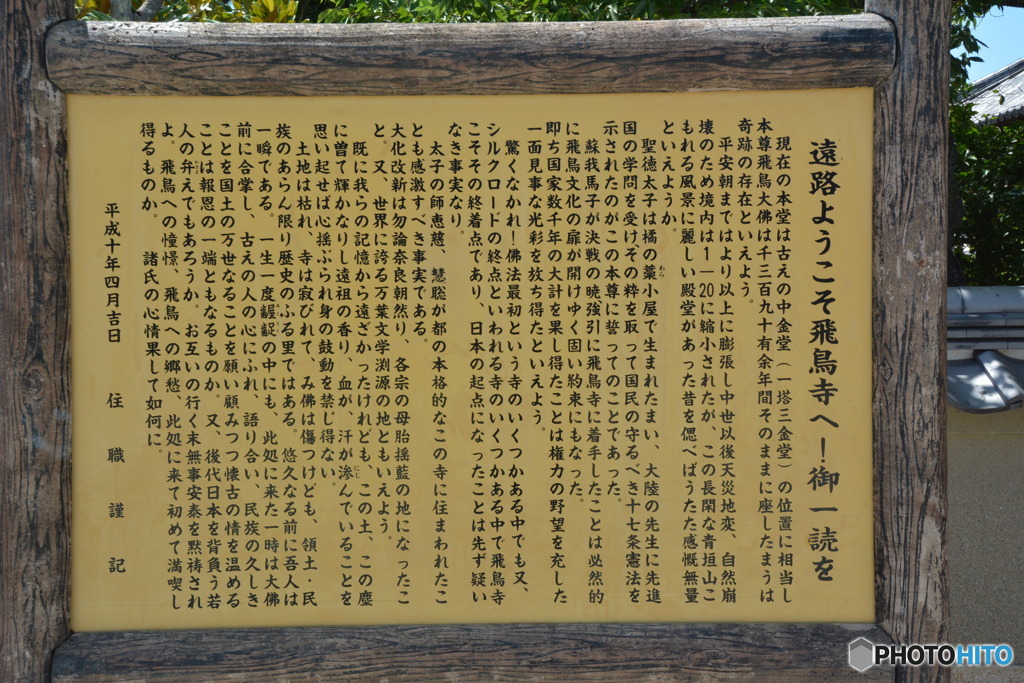 遠路ようこそ飛鳥寺へ!御一読を
現在の本堂は古えの中金堂(一塔三金堂)の位置に相当し
本尊飛鳥大佛は千三百九十有余年間そのままに座したまうは
奇跡の存在といえよう。
平安朝まではより以上に膨張し中世以後天災地変、自然崩
壊のため境内は1―20に縮小されたが、この長閑な青垣山こ
もれる風景に麗しい殿堂があった昔を偲べばうたた感慨無量
といえようか。
聖徳太子は橘の藁小屋で生まれたまい、大陸の先生に先進
わっ
国の学問を受けその粋を取って国民の守るべき十七条憲法を
示されたのがこの本尊に誓ってのことであった。
蘇我馬子が決戦の暁強引に飛鳥寺に着手したことは必然的
に飛鳥文化の扉が開けゆく固い約束にもなった。
即ち国家数千年の大計を果し得たことは権力の野望を充した
一面見事な光彩を放ち得たといえよう。
驚くなかれ!佛法最初という寺のいくつかある中でも又、
シルクロードの終点といわれる寺のいくつかある中で飛鳥寺
こそその終着点であり、日本の起点になったことは先ず疑い
なき事実なり。
太子の師恵慈、慧聡が都の本格的なこの寺に住まわれたこ
とも感激すべき事実である。
大化改新は勿論奈良朝然り、各宗の母胎揺藍の地になったこ
と。又、世界に誇る万葉文学渕源の地ともいえよう。
既に我らの記憶から遠ざかったけれども、この土、この塵
に曽て輝かなりし遠祖の香り、血が、汗が滲んでいることを
にじ
思い起せば心揺ぶられ身の鼓動を禁じ得ない。
土地は枯れ、寺は寂びれて、み佛は傷つけども、領土・民
族のあらん限り歴史のふる里ではある。悠久なる前に吾人は
一瞬である。一生一度齷齪の中にも、此処に来た一時は大佛
前に合掌し、古えの人の心にふれ、語り合い、民族の久しき
ことを国土の万世なることを願い顧みつつ懐古の情を温める
ことは報恩の一端ともなるものか。又、後代日本を背負う若
人の弁えでもあろうか。お互いの行く末無事安泰を黙祷され
よ。飛鳥への憧憬、飛鳥への郷愁、此処に来て初めて満喫し
得るものか。 諸氏の心情果して如何に。
平成十年四月吉日 住職謹記
PHOTOHITO